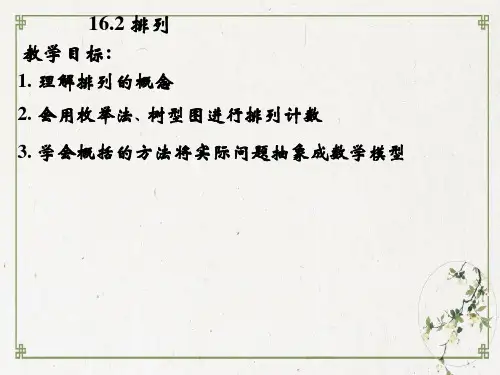 16.2 排列
教学目标：
1. 理解排列的概念
2. 会用枚举法、树型图进行排列计数
3. 学会概括的方法将实际问题抽象成数学模型